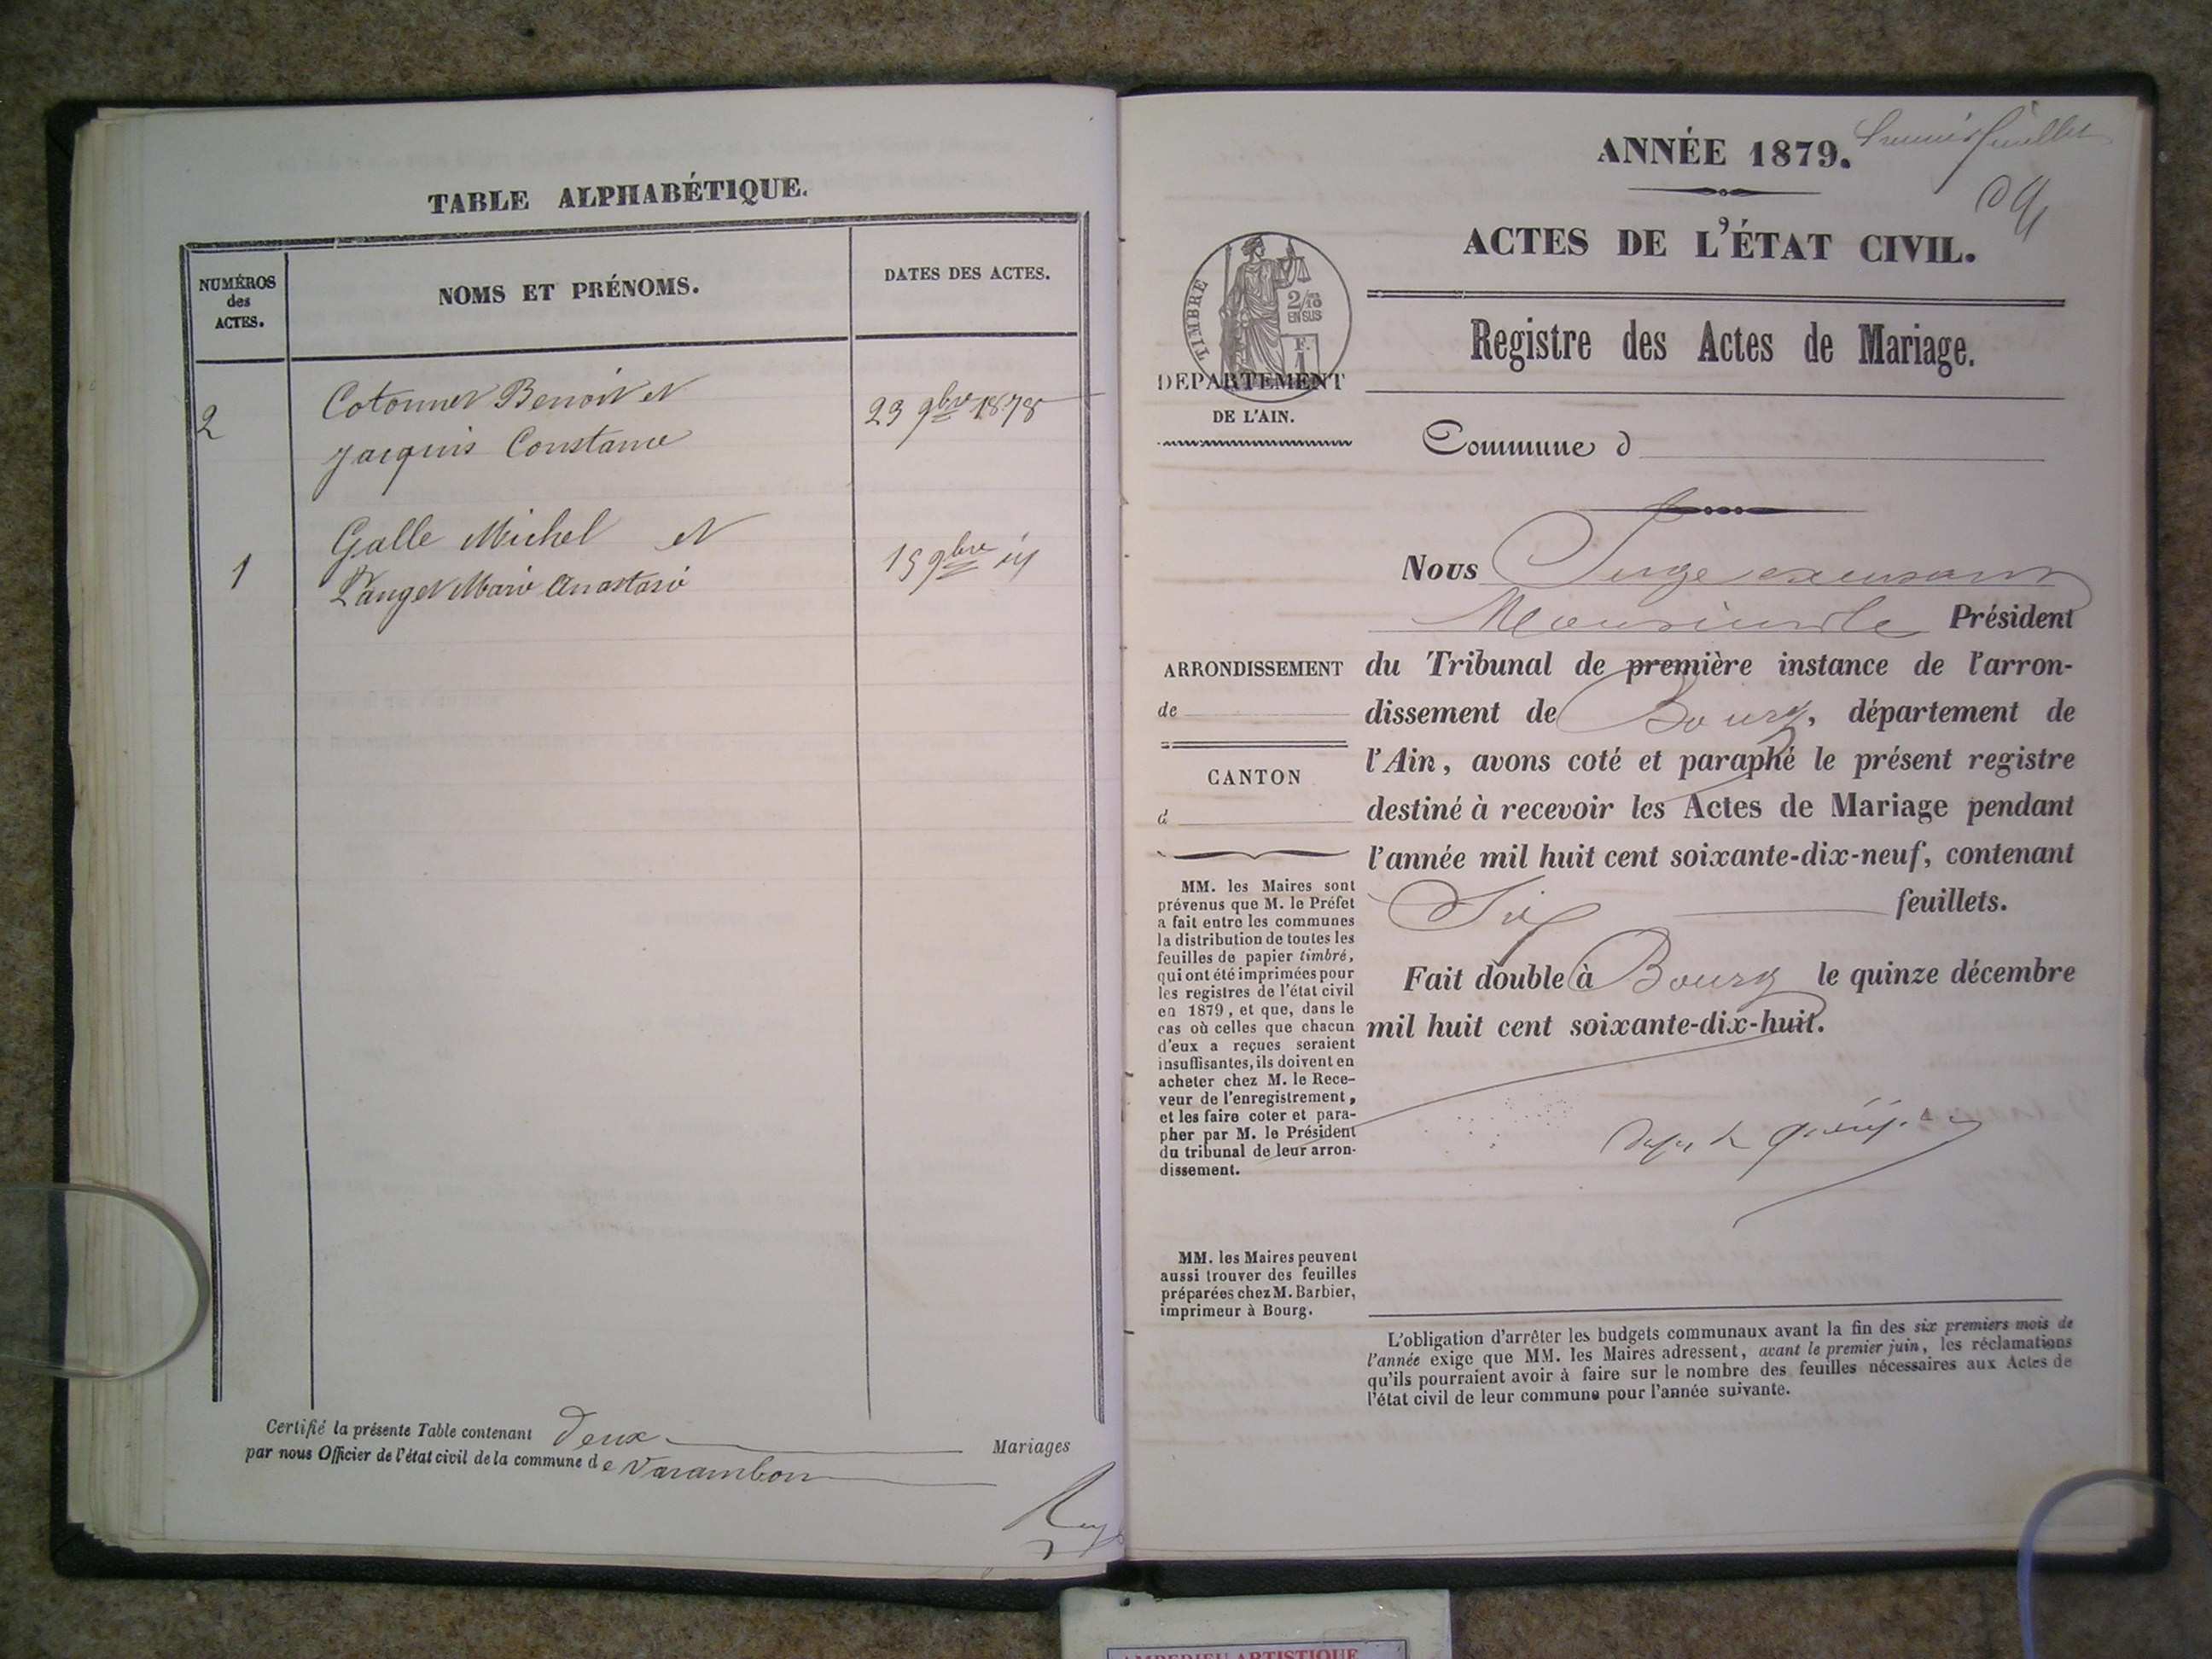 TABLE ALPHABÉTIQUE.
NUMÉROS
des
ACTES.
NOMS ET PRÉNOMS.
DATES DES ACTES.
2
Cotonnet Benoit et
Jacquis Constance
23 9bre 1878
1
Galle Michel et
Lauget Marie Anastasie
15 9bre id
Certifié la présente Table contenant deux Mariages
par nous Officier de l'état civil de la commune de Varambon
ANNÉE 1879.
Premier feuillet
ACTES DE L'ÉTAT CIVIL.
TIMBRE
2/10
EN SUS
F.
1
DEPARTEMENT
DE L'AIN.
Registre des Actes de Mariage.
Commune d
Nous Juge
Monsieur le Président
du Tribunal de première instance de l'arron-
dissement de Bourg, département de
l'Ain, avons coté et paraphé le présent registre
destiné à recevoir les Actes de Mariage pendant
l'année mil huit cent soixante-dix-neuf, contenant
Six feuillets.
Fait double à Bourg le quinze décembre
mil huit cent soixante-dix-huit.
ARRONDISSEMENT
de
CANTON
d
MM. les Maires sont
prévenus que M. le Préfet
a fait entre les communes
la distribution de toutes les
feuilles de papier timbré,
qui ont été imprimées pour
les registres de l'état civil
en 1879, et que, dans le
cas où celles que chacun
d'eux a reçues seraient
insuffisantes, ils doivent en
acheter chez M. le Rece-
veur de l'enregistrement,
et les faire coter et para-
pher par M. le Président
du tribunal de leur arron-
dissement.
MM. les Maires peuvent
aussi trouver des feuilles
préparées chez M. Barbier,
imprimeur à Bourg.
L'obligation d'arrêter les budgets communaux avant la fin des six premiers mois de
l'année exige que MM. les Maires adressent, avant le premier juin, les réclamations
qu'ils pourraient avoir à faire sur le nombre des feuilles nécessaires aux Actes de
l'état civil de leur commune pour l'année suivante.
AMBERIEU ARTISTIQUE